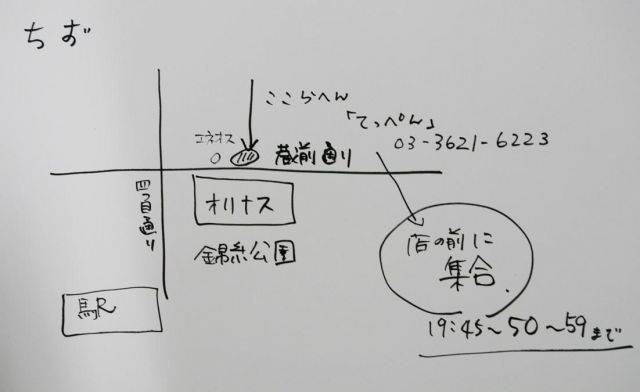 ちず
ここらへん
エネオス
「てっぺん」
03-3621-6223
蔵前通り
四つ目通り
オリナス
錦糸公園
店の前に
集合.
駅
19:45〜50〜59まで